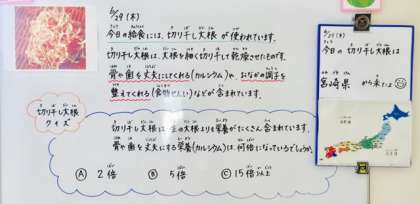 6/29(木)
今日の給食には、切り干し大根が使われています。
切り干し大根は、大根を細く切り干して乾燥させたものです。
骨や歯を丈夫にしてくれる(カルシウム)や、おなかの調子を
整えてくれる(食物せんい)などが含まれています。
切り干し大根
クイズ
切り干し大根は生の大根よりも栄養がたくさん含まれています。
骨や歯を丈夫にする栄養(カルシウム)は、何倍になっているでしょうか。
Ⓐ 2倍 Ⓑ 5倍 Ⓒ 15倍以上
6/29(木)
今日の切り干し大根は
宮崎県から来たよ